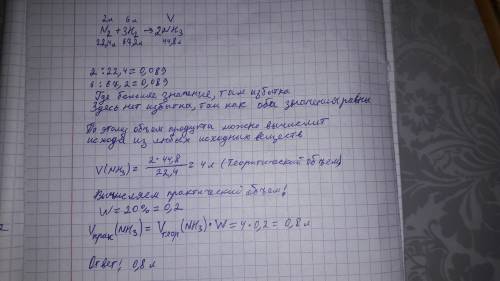 2л 6л V
N₂ + 3H₂ → 2NH₃
22,4л 67,2л 44,8л
2 : 22,4 = 0,089
6 : 67,2 = 0,089
Где большее значение, там избыток
Здесь нет избытка, так как оба значения равны
По этому объем продукта можно вычислит
исходя из любых исходных веществ
V(NH₃) = 2·44,8 / 22,4 = 4л (теоритический объем)
Вычисляем практический объем!
W = 20% = 0,2
Vпрак(NH₃) = Vтеор(NH₃)·W = 4·0,2 = 0,8л
Ответ! 0,8л